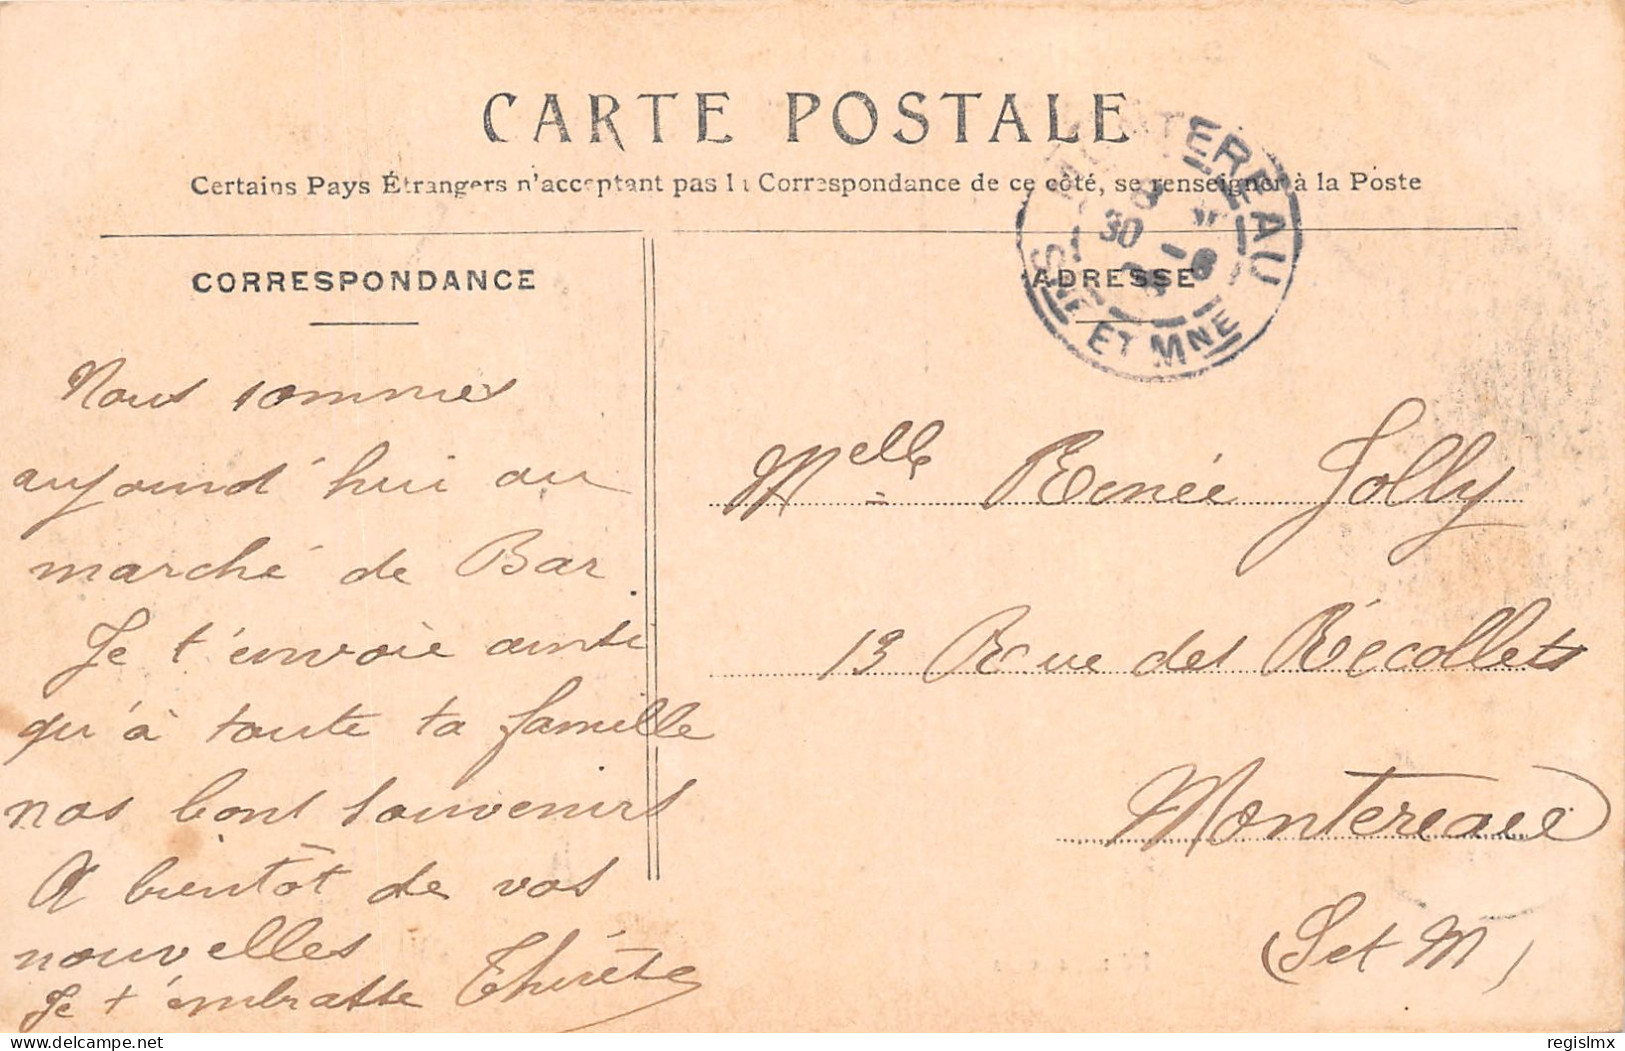 CARTE POSTALE
Certains Pays Étrangers n'acceptant pas la Correspondance de ce côté, se renseigner à la Poste
MONTEREAU
8 30
SNE ET MNE
CORRESPONDANCE
Nous sommes
aujourd'hui au
marché de Bar
Je t'envoie ainsi
qu'à toute ta famille
nos bons souvenirs
A bientôt de vos
nouvelles
Je t'embrasse
ADRESSE
Melle Renée Jolly
13 Rue des Récollets
Montereau
(S et M)
delcampe.net
regislmx